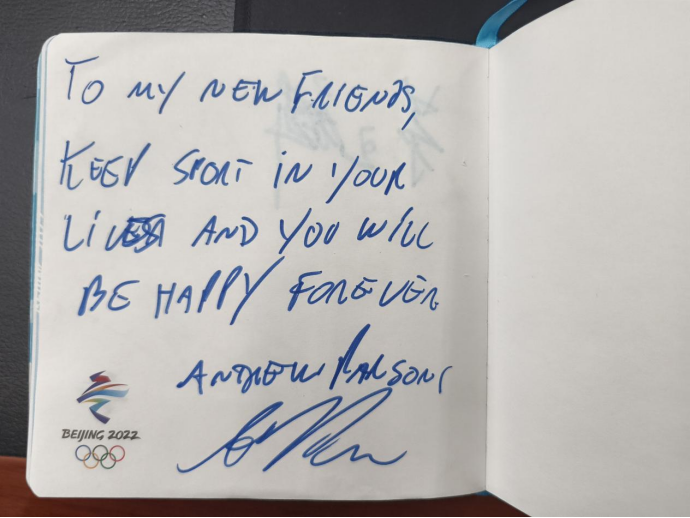 TO MY NEW FRIENDS,
KEEP SPORT IN YOUR
LIVES AND YOU WILL
BE HAPPY FOREVER
ANDREW PARSONS
BEIJING 2022